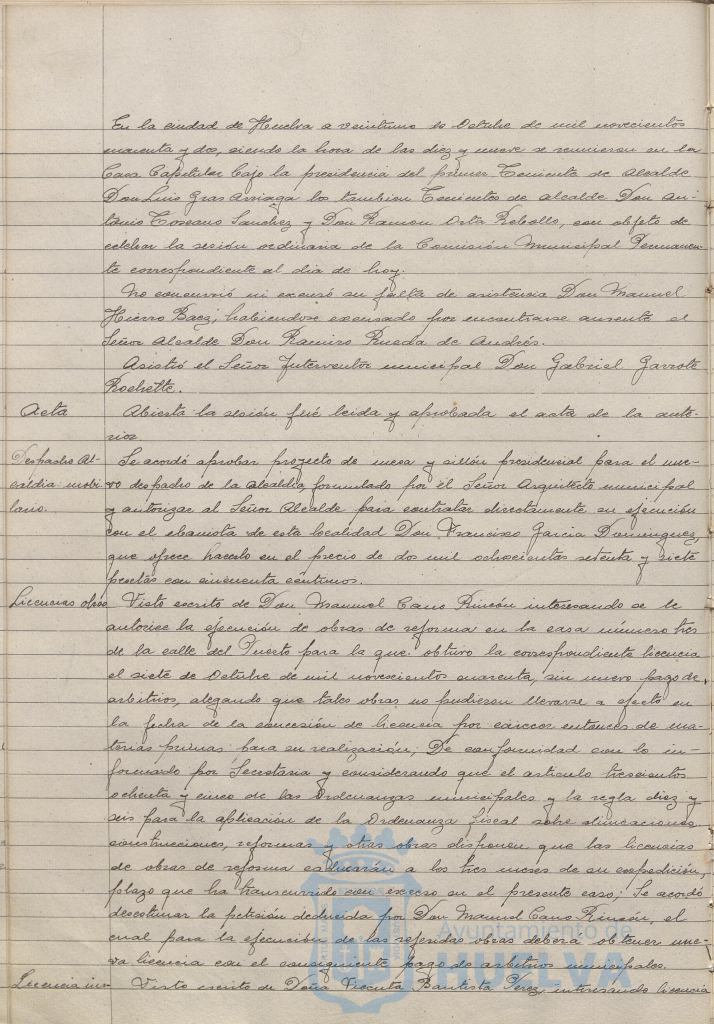 En la ciudad de Huelva a veintiuno de Octubre de mil novecientos
cuarenta y dos, siendo la hora de las diez y nueve se reunieron en la
Casa Capitular bajo la presidencia del primer Teniente de Alcalde
Don Luis Gras Arriaga los tambien Tenientes de Alcalde Don An-
tonio Toscano Sanchez y Don Ramon Orta Rebollo, con objeto de
celebrar la sesión ordinaria de la Comisión Municipal Permanen-
te correspondiente al dia de hoy.
No concurrió ni excusó su falta de asistencia Don Manuel
Hierro Baez, habiendose excusado por encontrarse ausente el
Señor Alcalde Don Ramiro Rueda de Andrés.
Asistió el Señor Interventor municipal Don Gabriel Garrote
Rochette.
Acta
Abierta la sesión fué leida y aprobada el acta de la ante-
rior
Despacho Al-
caldia mobi-
lario.
Se acordó aprobar proyecto de mesa y sillón presidencial para el nue-
vo despacho de la Alcaldia formulado por él Señor Arquitecto municipal
y autorizar al Señor Alcalde para contratar directamente su ejecución
con el ebanista de esta localidad Don Francisco Garcia Dominguez,
que ofrece hacerlo en el precio de dos mil ochocientas setenta y siete
pesetas con cincuenta céntimos.
Licencias obras
Visto escrito de Don Manuel Cano Rincón interesando se le
autorice la ejecución de obras de reforma en la casa número tres
de la calle del Puerto para la que obtuvo la correspondiente licencia
el siete de Octubre de mil novecientos cuarenta, sin nuevo pago de
arbitrios, alegando que tales obras no pudieron llevarse a efecto en
la fecha de la concesión de licencia por carecer entonces de ma-
terias primas para su realización; De conformidad con lo in-
formado por Secretaria y considerando que el articulo trescientos
ochenta y cinco de las Ordenanzas municipales y la regla diez y
seis para la aplicación de la Ordenanza fiscal sobre alineaciones,
construcciones, reformas y otras obras disponen que las licencias
de obras de reforma caducarán a los tres meses de su expedición,
plazo que ha transcurrido con exceso en el presente caso; Se acordó
desestimar la petición deducida por Don Manuel Cano Rincón, el
cual para la ejecución de las referidas obras deberá obtener nue-
va licencia con el consiguiente pago de arbitrios municipales.
Visto escrito de Doña Vicenta Bautista Perez, interesando licencia
Ayuntamiento de
HUELVA